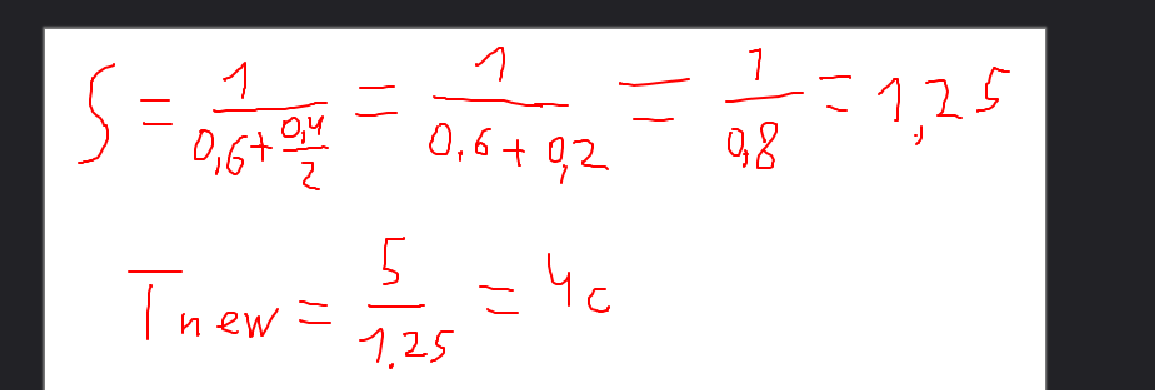 S = 1/(0,6+0,4/2) = 1/(0,6+0,2) = 1/0,8 = 1,25
Tnew = 5/1.25 = 4c